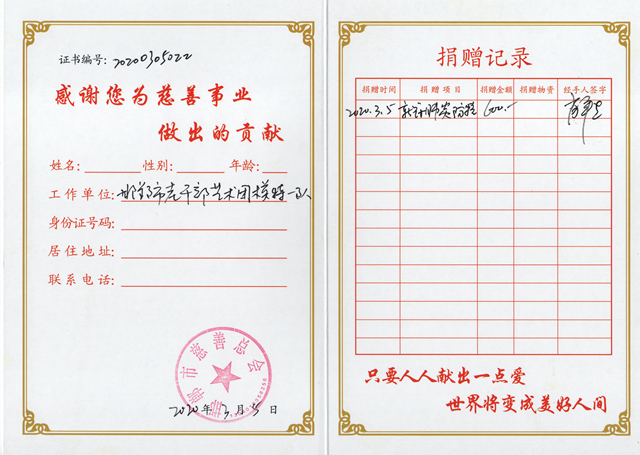 证书编号: 20200305022
感谢您为慈善事业
做出的贡献
姓名: 性别: 年龄:
工作单位: 邯郸市老干部艺术团模特一队
身份证号码:
居住地址:
联系电话:
邯郸市慈善总会
2020年3月5日
捐赠记录
捐赠时间 捐赠项目 捐赠金额 捐赠物资 经手人签字
2020.3.5 600.-
只要人人献出一点爱
世界将变成美好人间